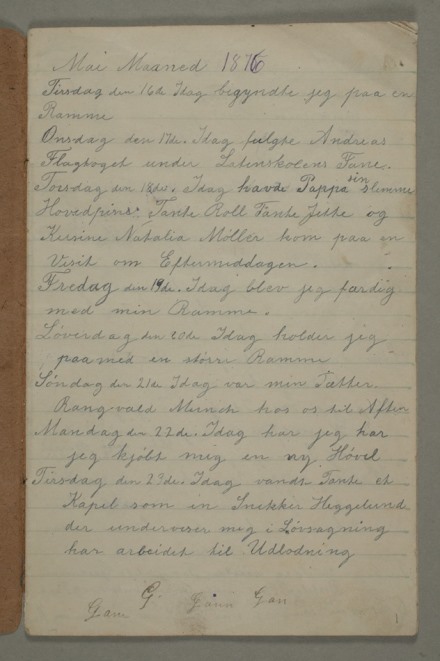 Mai Maaned 1876
Tirsdag den 16de Idag begyndte jeg paa en
Ramme
Onsdag den 17de. Idag fulgte Andreas
Flagtoget under Latinskolens Fane.
Torsdag den 18de. Idag havde Pappa sin slemme
Hovedpine. Tante Roll Tante Jette og
Kirsine Natalia Möller kom paa en
Visit om Eftermiddagen.
Fredag den 19de. Idag blev jeg færdig
med min Ramme.
Løverdag den 20de Idag holder jeg
paa med en större Ramme
Søndag den 21de Idag var min Fætter
Rangvald Munch hos os til Aften
Mandag den 22de. Idag har jeg har
jeg kjöbt meg en ny Hövel
Tirsdag den 23de. Idag vandt Tante et
Kapel som en Snekker Heggelund
der underviser meg i Lövsagning
har arbeidet til Udlodning
G.
Gam Gaun Gan